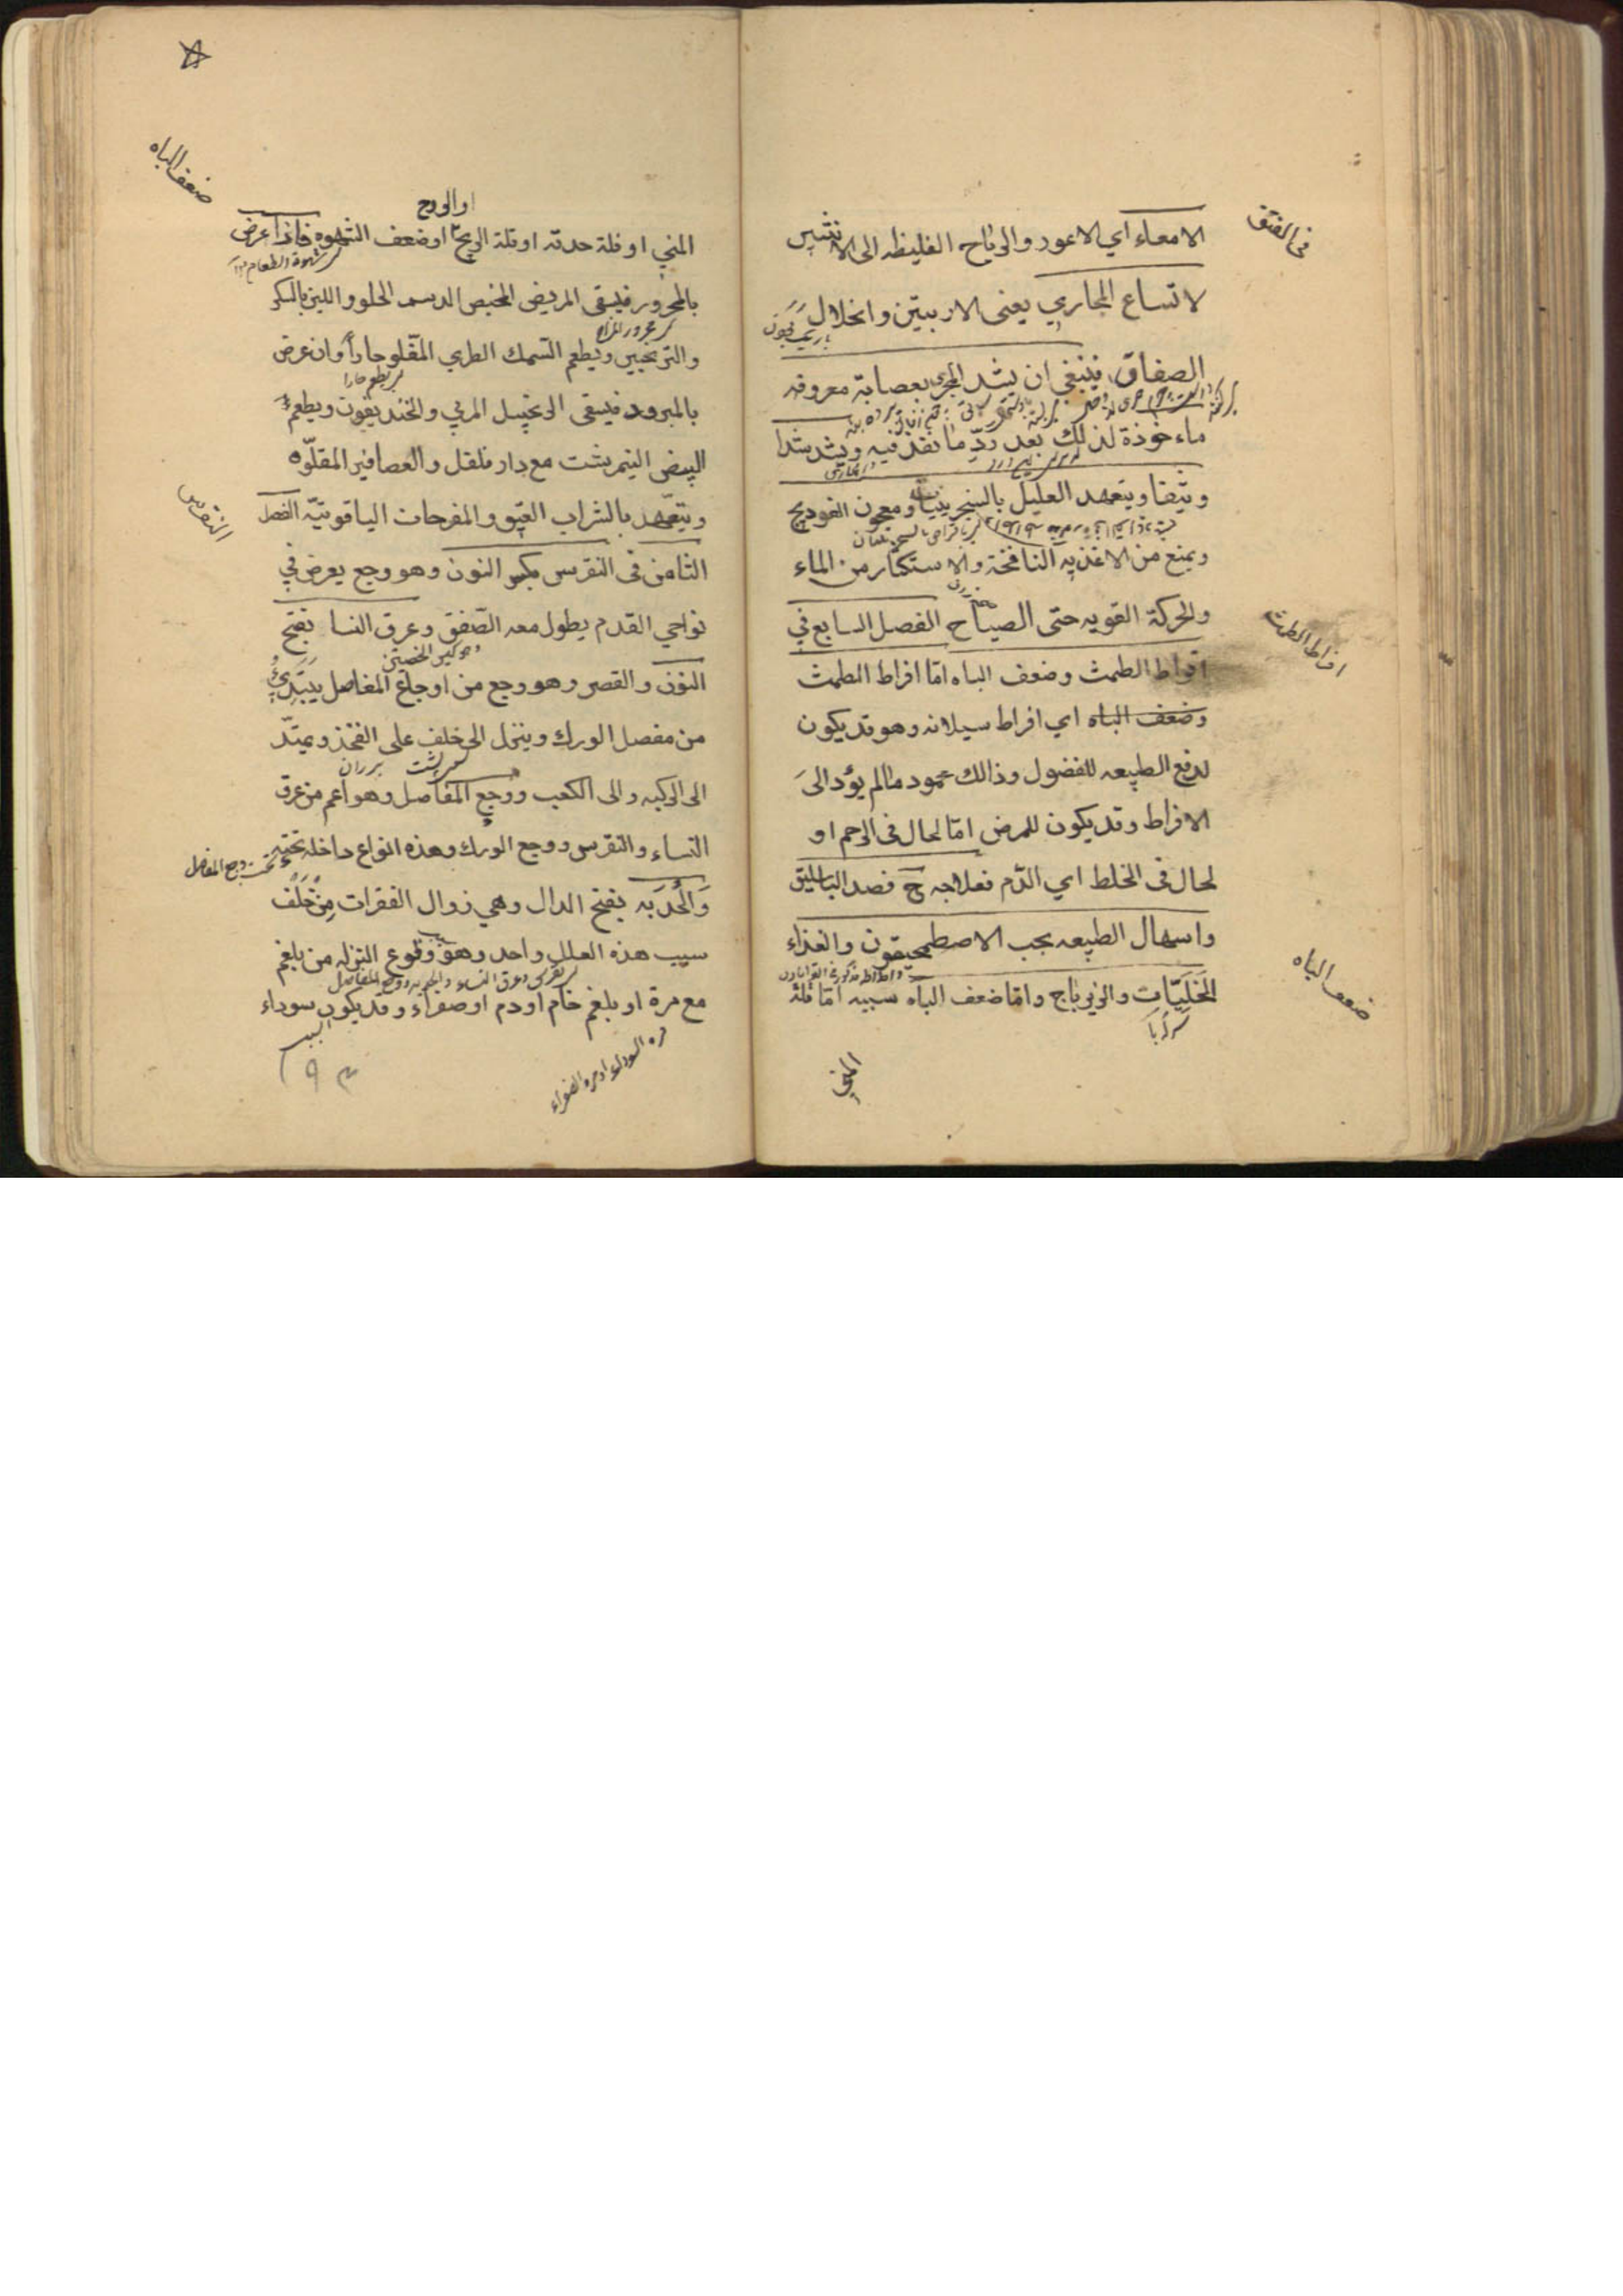 في الفتق
الامعاء اي الاعور والرياح الغليظه الى الانثيين
لاتساع المجاري يعنى الاربيتين وانخلال
الصفاق فينبغي ان يشد المجرى بعصابة معروفه
ماءخوذة لذلك بعد ردّ ما نفذ فيه ويشد شدا
وثيقا ويتعهد العليل بالسنجرينيا ومعجون الفودنج
ويمنع من الاغذيه النافخة والاستكثار من الماء
والحركة القويه حتى الصياح الفصل السابع في
افراط الطمث
افراط الطمث وضعف الباه امّا افراط الطمث
وضعف الباه اي افراط سيلانه وهو قد يكون
لدفع الطبيعه للفضول وذالك محمود مالم يؤد الى
الافراط وقد يكون للمرض امّا لحال في الرحم او
لحال في الخلط اي الدّم فعلاجه فصد الباسليق
واسهال الطبيعه بحب الاصطمحيقون والغذاء
ضعف الباه
الخَلِيّات والزيرباج وامّا ضعف الباه سببه امّا قلة
المني
ضعف الباه
او الروح
المني او قلة حدته او قلة الريح او ضعف الشهوه فاذا عرض
شهوة الطعام
بالمحرور فيسقى المريض المخيض الدسم الحلو واللبن بالسكر
والترنجبين ويطعم السمك الطري المقلو حاراً وان عرض
بالمبرود فيسقى الزنجبيل المربي والخنديقون ويطعم
البيض النيمرشت مع دار فلفل والعصافير المقلوّه
النقرس
ويتعّهد بالشراب العتيق والمفرحات الياقوتيّه الفصل
الثامن في النقرس بكسر النون وهو وجع يعرض في
نواحي القدم يطول معه الصّفق وعرق النسا بفتح
النون والقصر وهو وجع من اوجاع المفاصل يبتدئ
من مفصل الورك وينزل الى خلف على الفخذ ويمتدّ
الى الركبه والى الكعب ووجع المفاصل وهو اعم من عرق
النساء والنقرس ووجع الورك وهذه انواع داخله تحته
تحت وجع المفاصل
وَالحَدَبَه بفتح الدال وهي زوال الفقرات من خلف
سبب هذه العلل واحد وهو وقوع النزله من بلغم
مع مرة او بلغم خام او دم او صفراء وقد يكون سوداء
السبب
مره السوداء او مره الصفراء